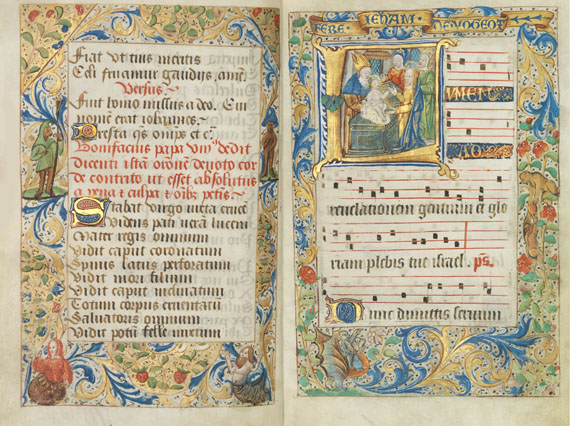 Fiat vt tuis meritis
Celi fruamur gaudiis amen
Versus
Fuit homo missus a deo. Cui
nomen erat iohannes.
Presta qs omps et c.
Bonifacius papa viij dedit
dicenti istam orationem deuoto cor
de contrito ut esset absolutus
a pena et culpa et
Stabat virgo iuxta cruce
Videns pati veram lucem
Mater regis omnium
Vidit caput coronatum
Spinis latus perforatum
Vidit mori filium
Vidit caput inclinatum
Totum corpus cruentatum
Saluatoris omnium
Vidit potum felle mixtum
FERE IEHAM DE NOGENT
LUMEN
AD
reuelacionem gentium et glo
riam plebis tue israel. ps.
Nunc dimittis seruum